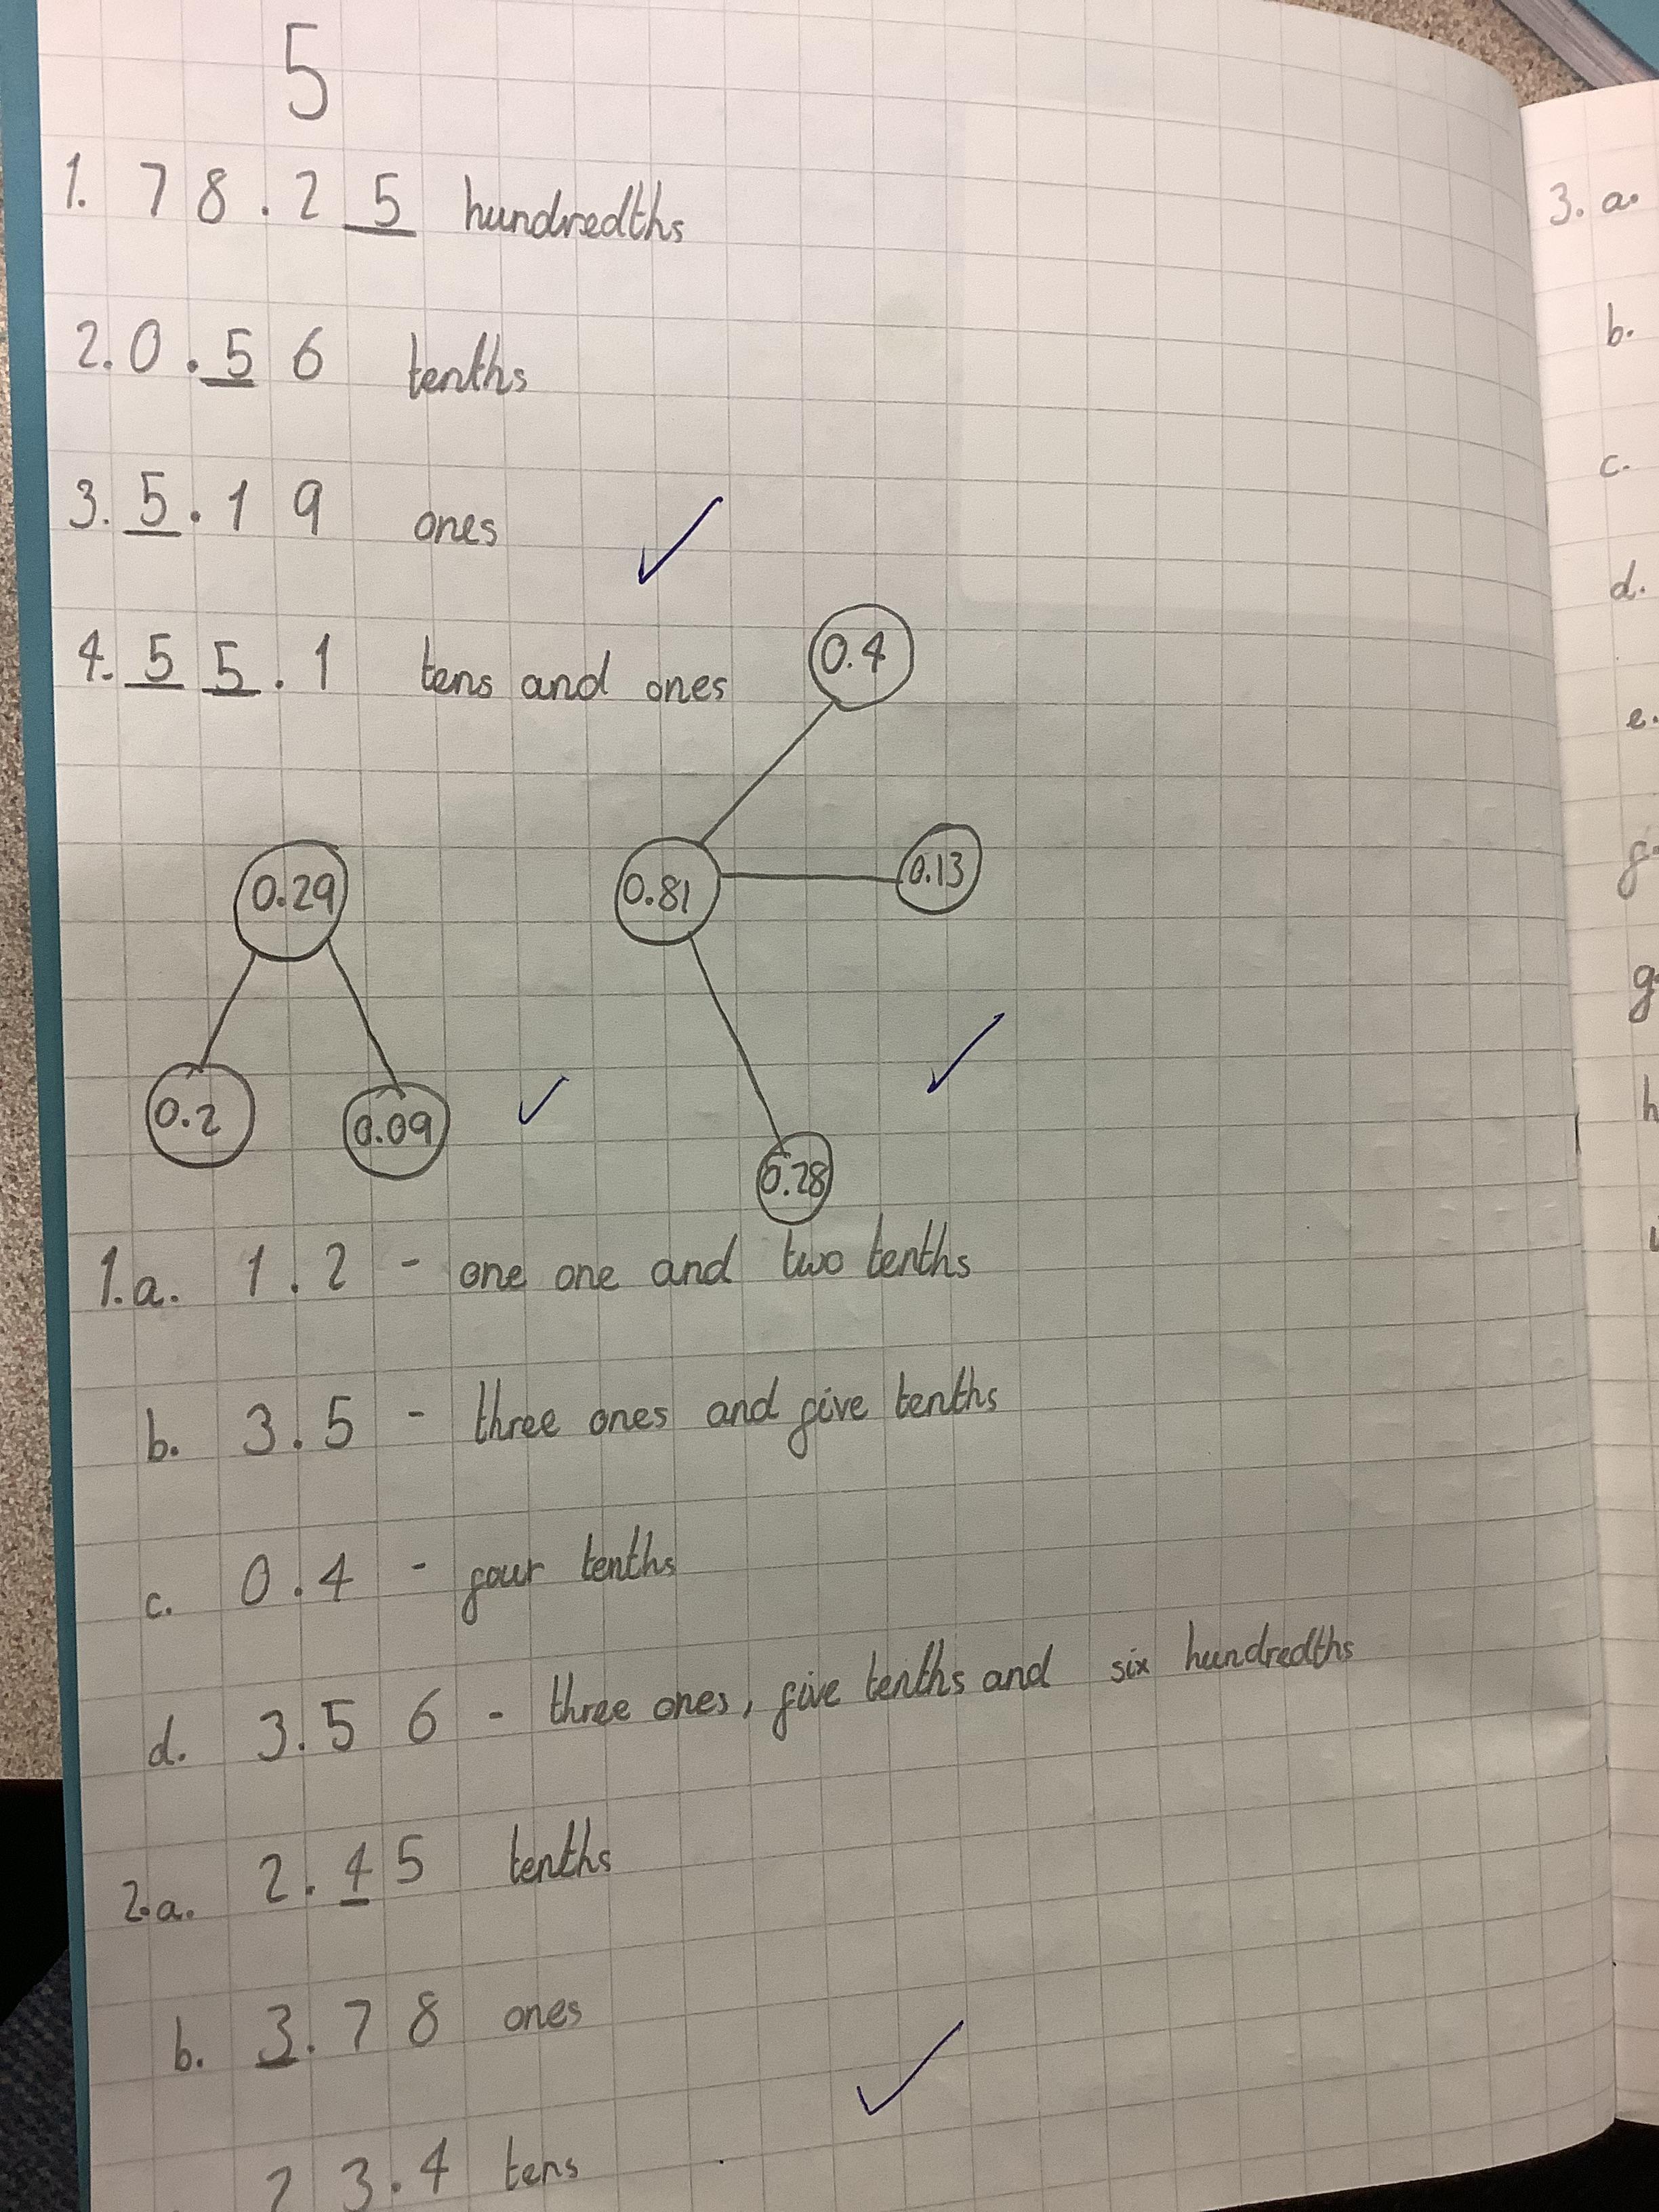 5
1. 78.25 hundredths
2. 0.56 tenths
3. 5.19 ones
4. 55.1 tens and ones
0.4
0.29
0.81
0.13
0.2
0.09
0.28
1.a. 1.2 - one one and two tenths
b. 3.5 - three ones and five tenths
c. 0.4 - four tenths
d. 3.56 - three ones, five tenths and six hundredths
2.a. 2.45 tenths
b. 3.78 ones
23.4 tens
3. a.
b.
c.
d.
e.
f.
g.
h